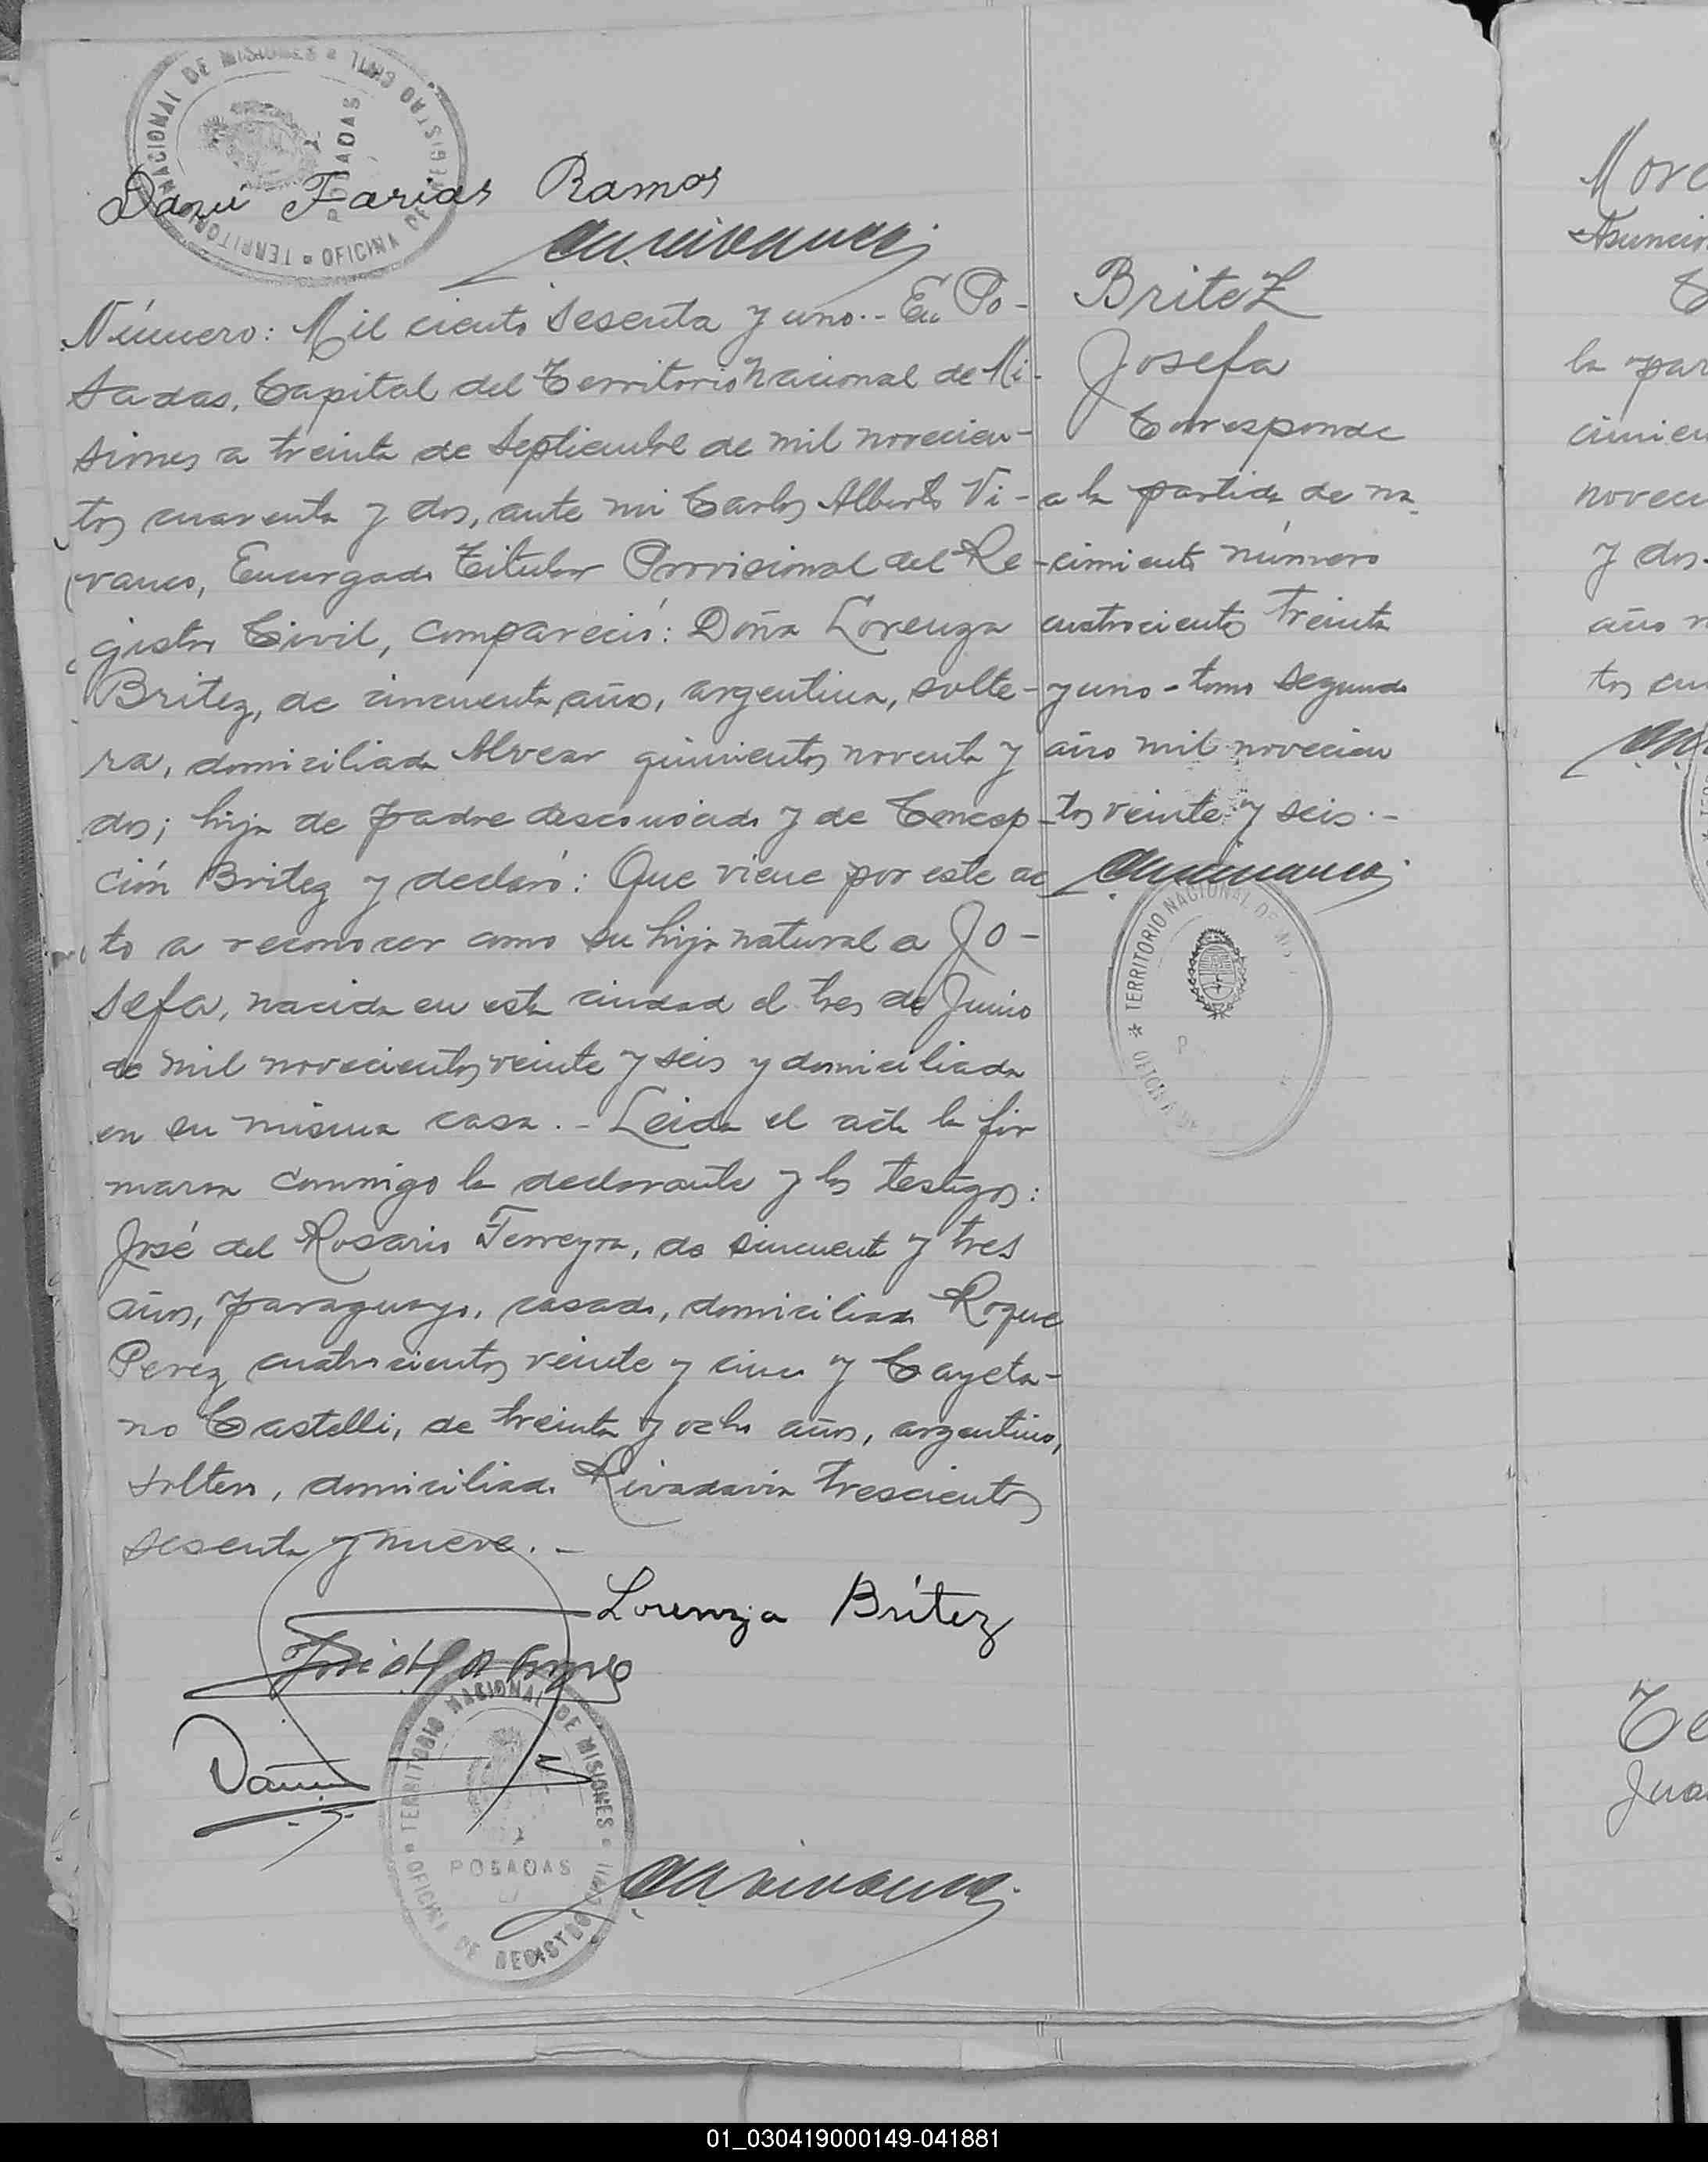 TERRITORIO NACIONAL DE MISIONES * OFICINA DE REGISTRO CIVIL
POSADAS
Farias Ramos
Número: Mil ciento sesenta y uno.- En Po-
sadas, Capital del Territorio Nacional de Mi-
siones a treinta de Septiembre de mil novecien-
tos cuarenta y dos, ante mi Carlos Alberto Vi-
vanco, Encargado Titular Provisional del Re-
gistro Civil, compareció: Doña Lorenza
Britez, de cincuenta años, argentina, solte-
ra, domiciliada Alvear quinientos noventa y
dos; hija de padre desconocido y de Concep-
ción Britez y declaró: Que viene por este ac
to a reconocer como su hija natural a Jo-
sefa, nacida en esta ciudad el tres de Junio
de mil novecientos veinte y seis y domiciliada
en su misma casa.- Leida el acta la fir
maron conmigo la declarante y los testigos:
José del Rosario Ferreyra, de sincuenta y tres
años, paraguayo, casado, domiciliado Roque
Perez cuatrocientos veinte y cinco y Cayeta-
no Castelli, de treinta y ocho años, argentino,
soltero, domiciliado Rivadavia trescientos
sesenta y nueve.-
Lorenza Brítez
TERRITORIO NACIONAL DE MISIONES * OFICINA DE REGISTRO CIVIL
POSADAS
BriteZ
Josefa
Corresponde
a la partida de na
cimiento número
cuatrocientos treinta
y uno - tomo segundo
año mil novecien
tos veinte y seis.-
* TERRITORIO NACIONAL DE
OFICINA
More
Asunción
la par
cimien
novecie
y dos.
año
tos cu
Jua
01_030419000149-041881